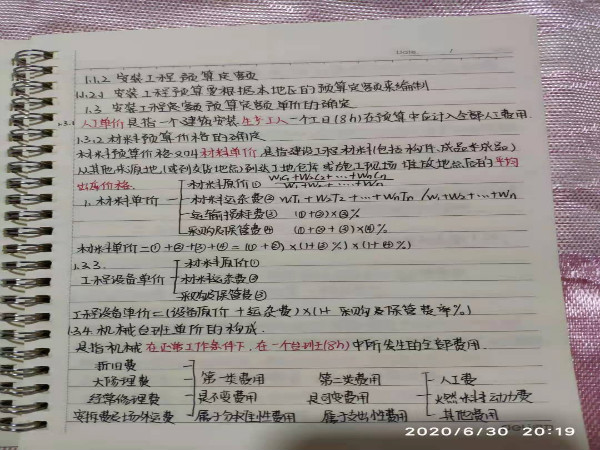 Date /
1.1.2 安装工程预算定额
1.1.2.1 安装工程预算要根据本地区的预算定额来编制
1.3 安装工程定额预算定额单价的确定
1.3.1 人工单价是指一个建筑安装生产工人一个工日(8h)在预算中应计入全部人工费用.
1.3.2 材料预算价格的确定
材料预算价格又叫材料单价,是指建设工程材料(包括构件,成品半成品)
从其他来源地,(或到交货地点)到达工地仓库或施工现场堆放地点后的平均
出库价格.
1. 材料单价
材料原价① W1C1+W2C2+…+WnCn / W1+W2+…+Wn
材料运杂费② W1T1+W2T2+…+WnTn /W1+W2+…+Wn
运输损耗费③ (①+②)×③%
采购及保管费④ (①+②+③)×④%
材料单价=①+②+③+④=(①+②)×(1+③%)×(1+④%)
1.3.3.
工程设备单价
材料原价①
材料运杂费②
采购及保管费③
工程设备单价=(设备原价+运杂费)×(1+采购及保管费率%)
1.3.4.机械台班单价的构成.
是指机械在正常工作条件下,在一个台班(8h)中所发生的全部费用.
折旧费
大修理费 第一类费用 第二类费用 人工费
经常修理费 是不变费用 是可变费用 燃料动力费
安拆费及场外运费 属于分摊性费用 属于支出性费用 其他费用
2020/6/30 20:19